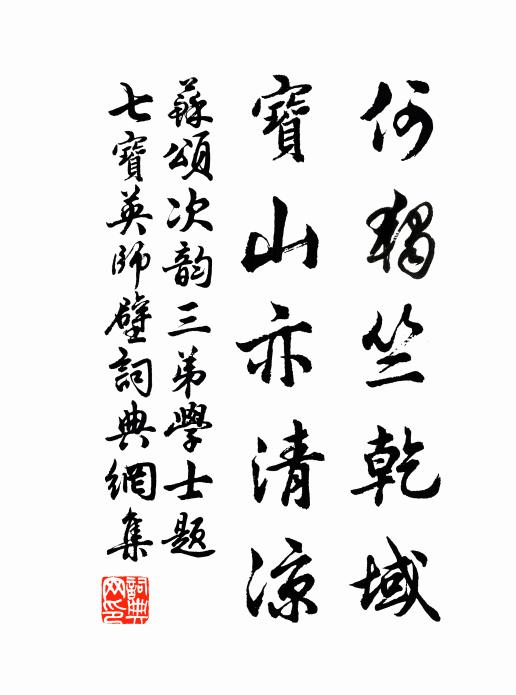 何獨竺乾域
寶山亦清涼
蘇頌次韵三弟學士題
七寶英師壁詞典網集
詞典